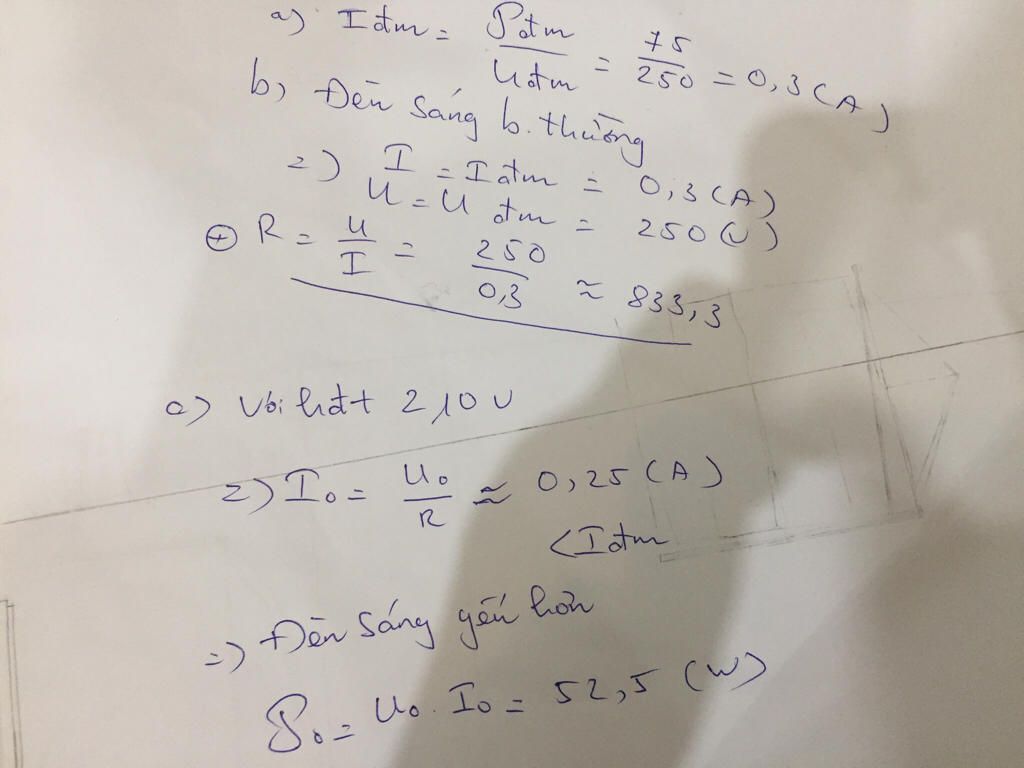 a) Iđm = Pđm / Uđm = 75 / 250 = 0,3 (A)
b) Đèn sáng b. thường
=) I = Iđm = 0,3 (A)
U = U đm = 250 (V)
⊕ R = U / I = 250 / 0,3 ≈ 833,3
c) Với hđt 210 V
=) I₀ = U₀ / R ≈ 0,25 (A)
< Iđm
=) Đèn sáng yếu hơn
P₀ = U₀. I₀ = 52,5 (W)